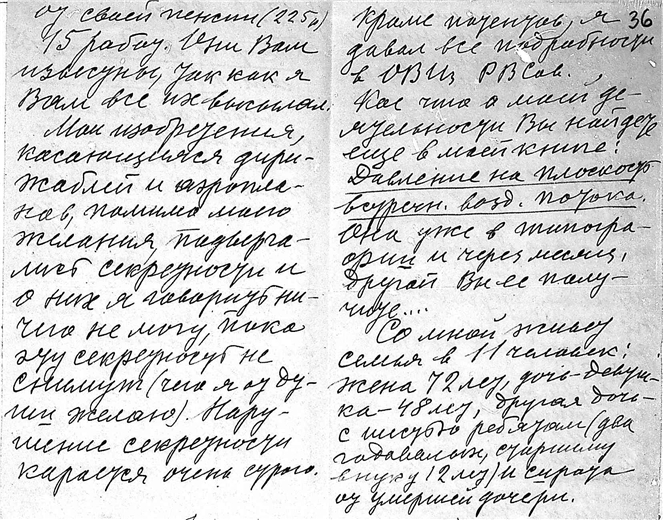 из своей пенсии (225 р)
15 работ. Они Вам
известны, так как я
Вам все их высылал.
Мои изобретения,
касающиеся дири-
жаблей и аэропла-
нов, помимо моего
желания, подверга-
лись секретности и
о них я говорить ни-
чего не могу, пока
эту секретность не
снимут (чего я от ду-
ши желаю). Нару-
шение секретности
карается очень строго.
36
Кроме патентов, я
давал все подробности
в ОВИз РВСов.
Кое что о моей де-
ятельности Вы найдете
еще в моей книге:
Давление на плоскость
встречн. возд. потока.
Она уже в типогра-
фии и через месяц,
другой Вы ее полу-
чите....
Со мной живет
семья в 11 человек:
жена 72 лет, дочь-девуш-
ка - 48 лет, другая дочь -
с шестью ребятами (два
годовалых, старшему
внуку 12 лет) и сирота
от умершей дочери.